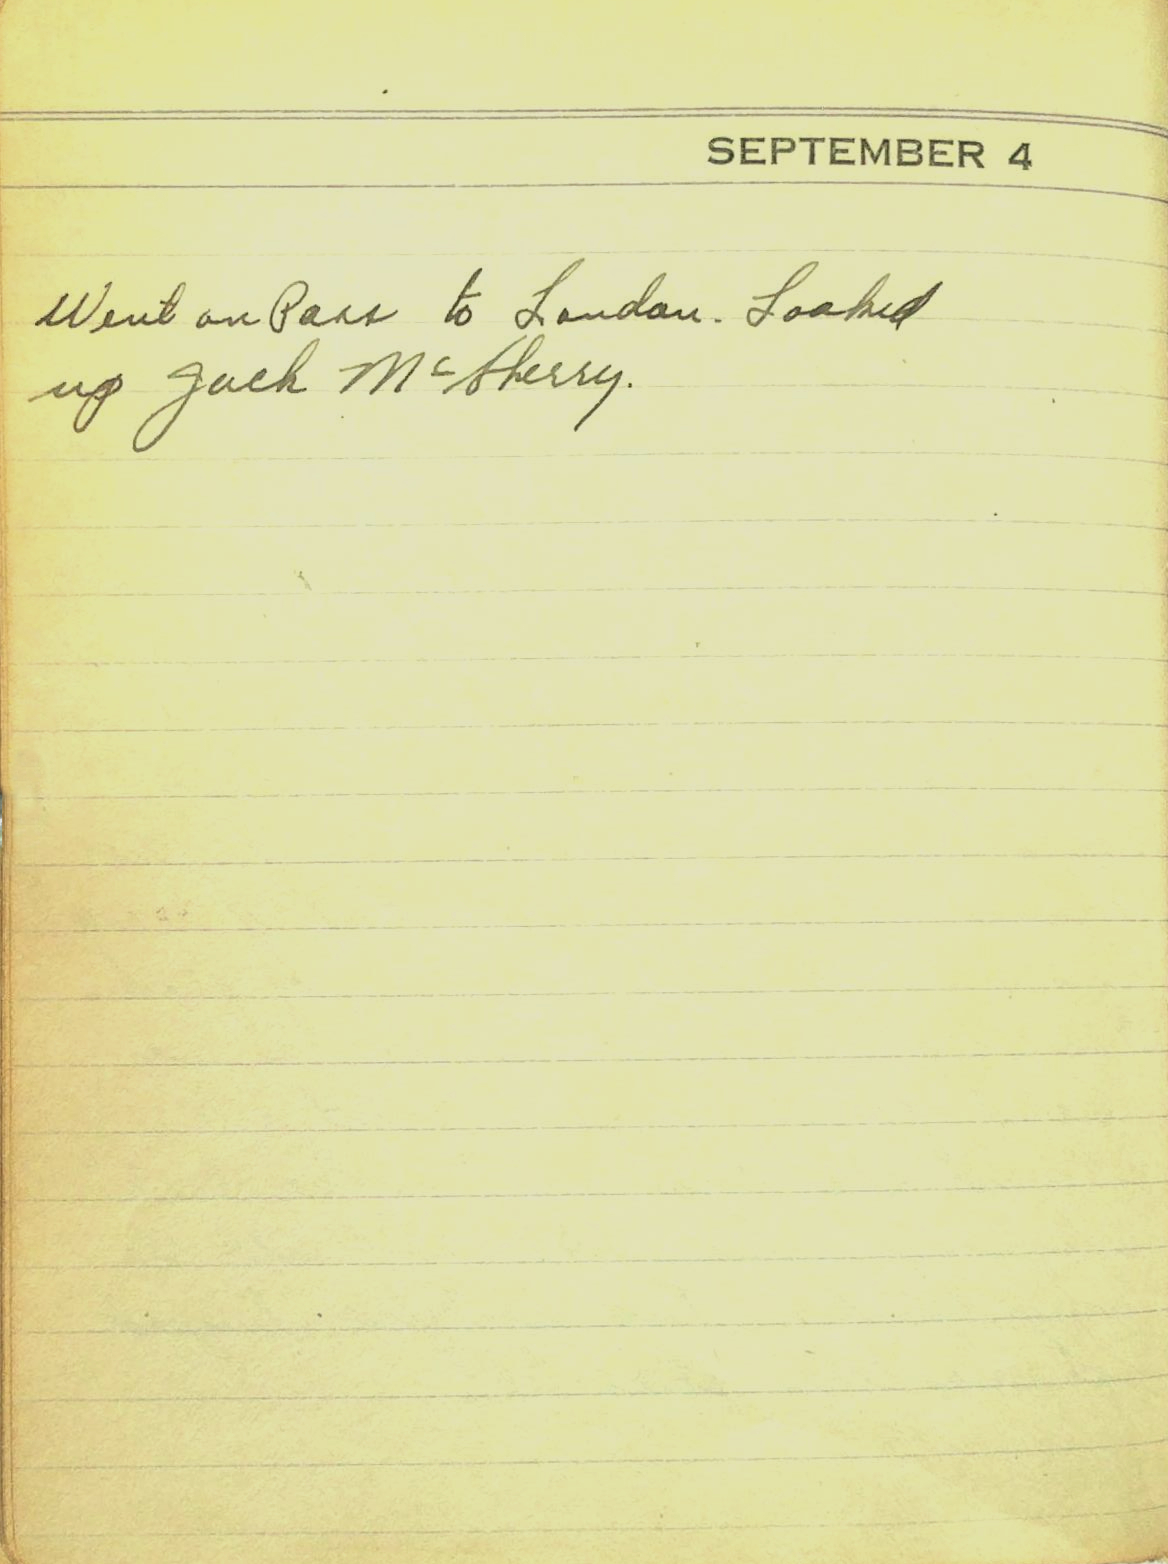 SEPTEMBER 4
Went on Pass to London. Looked
up Jack McSherry.